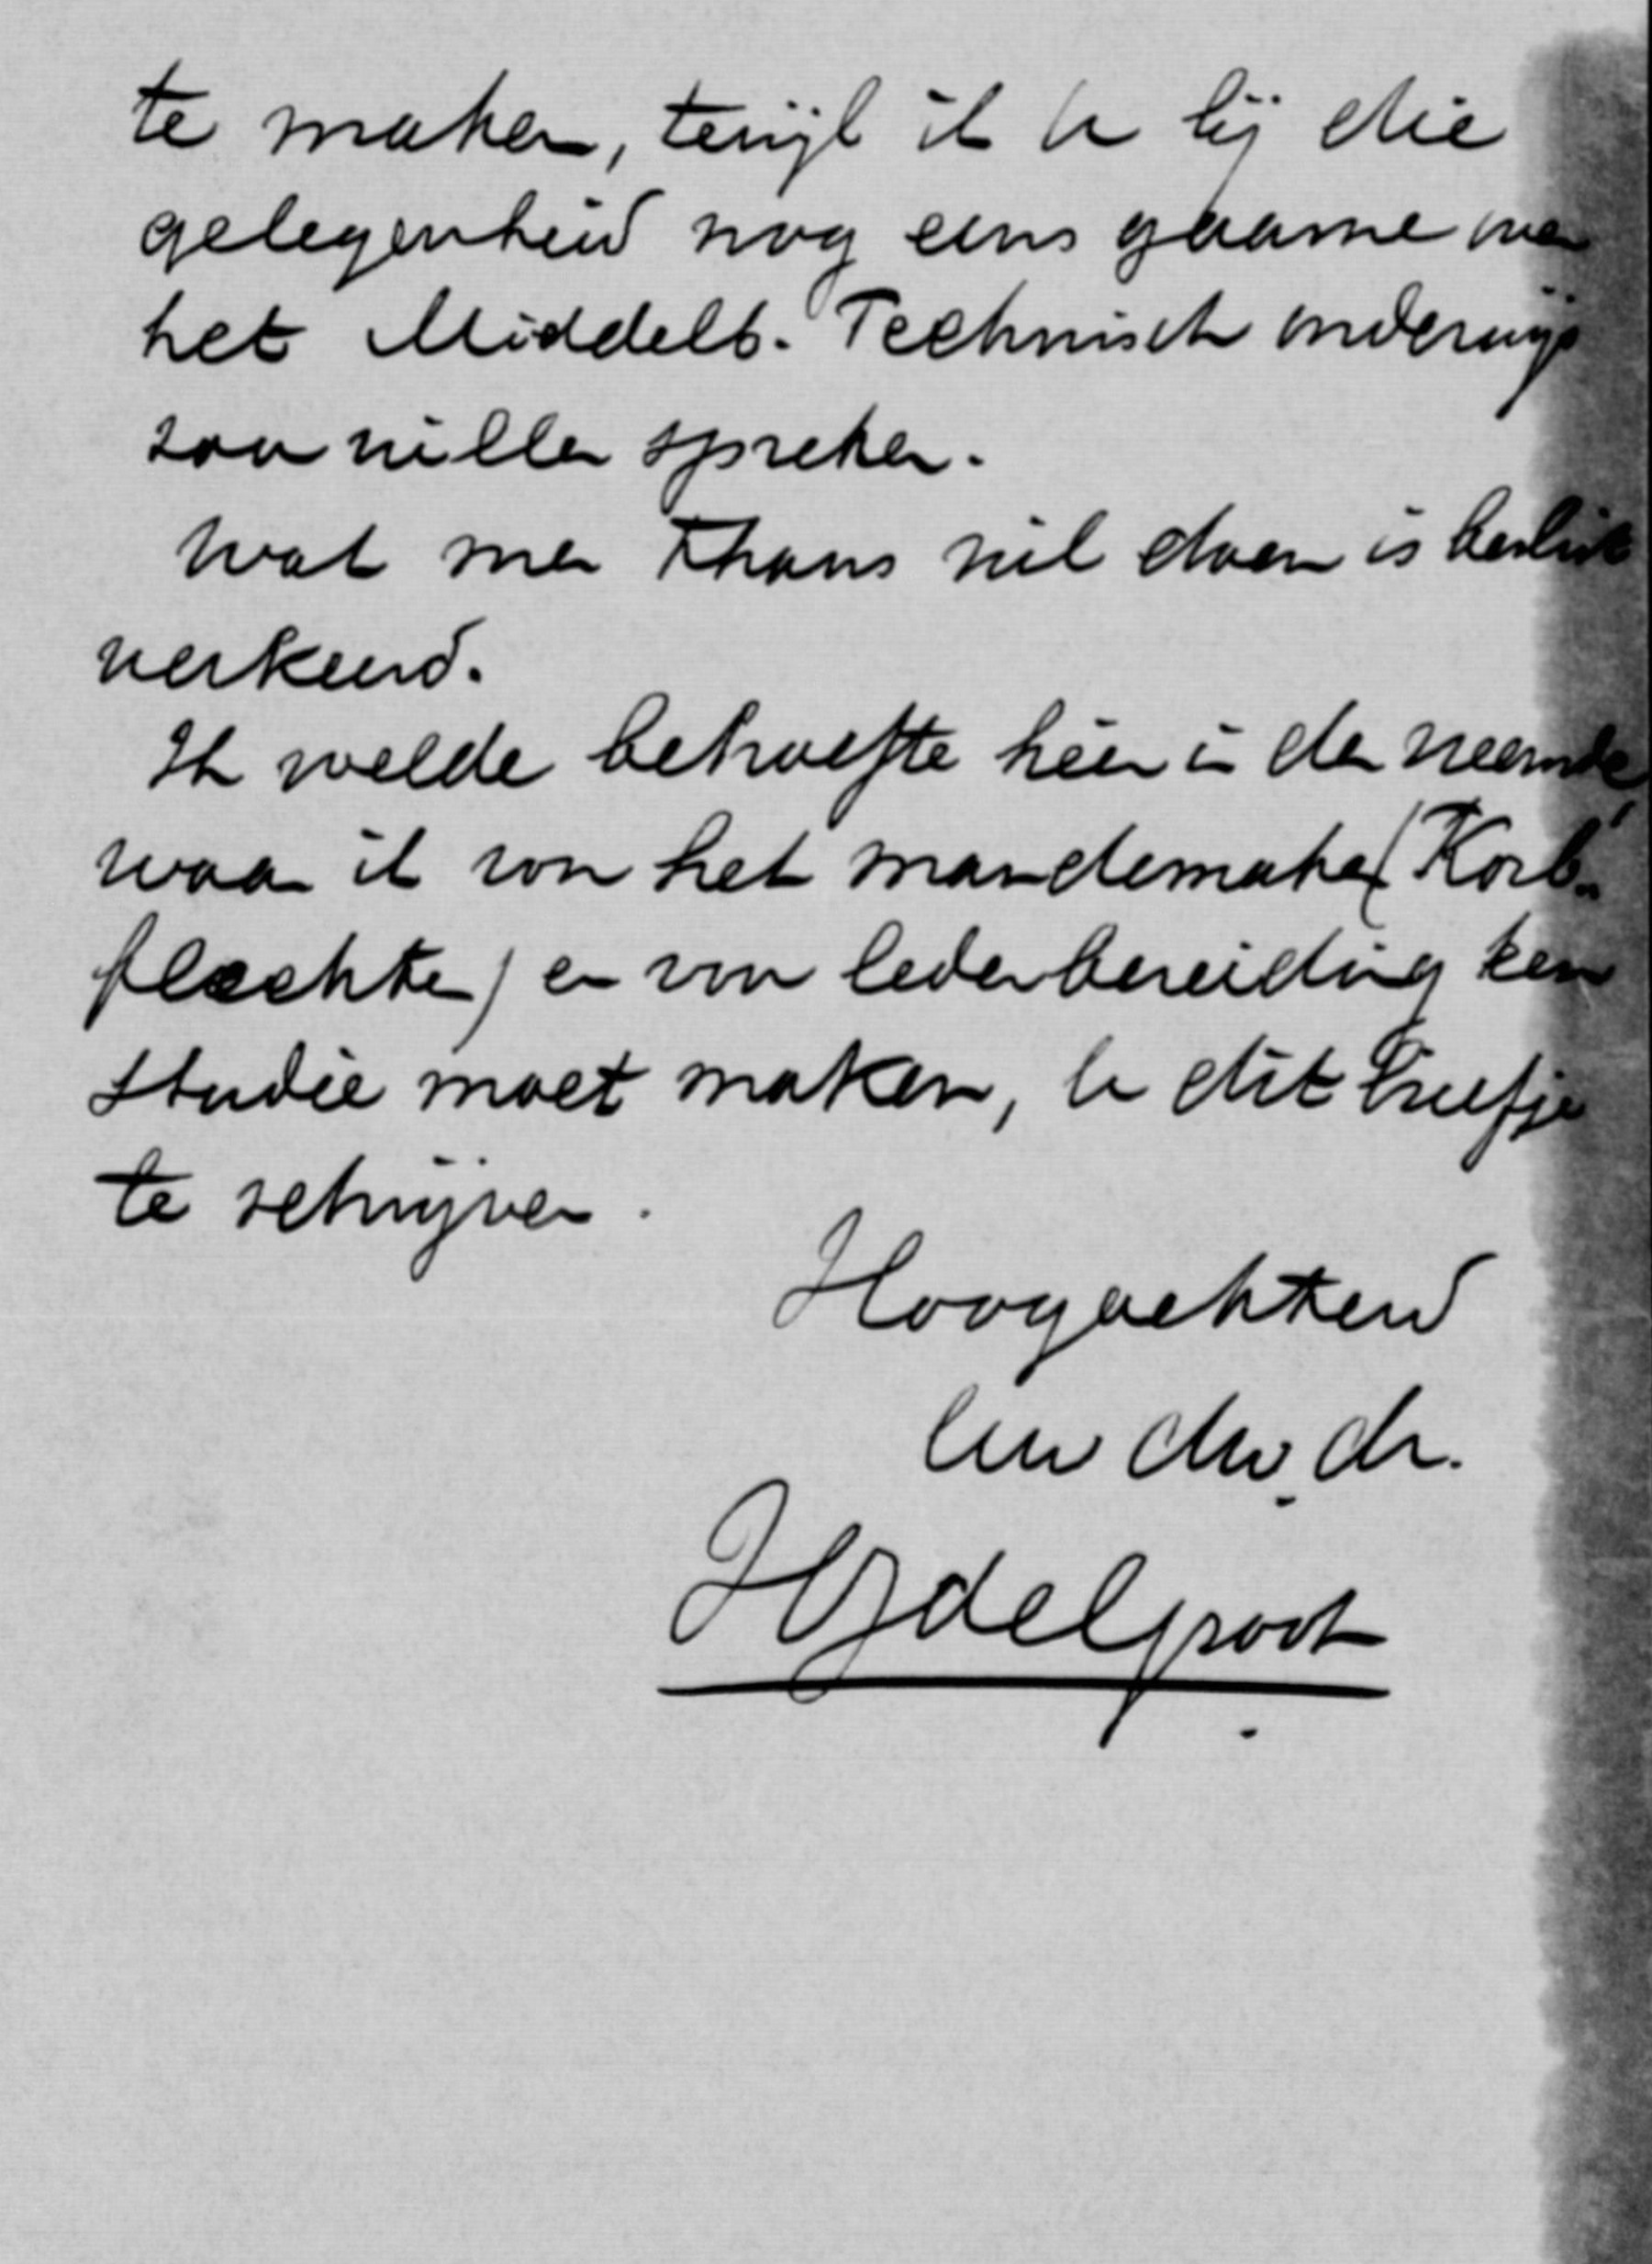 te maken, terwijl ik U bij die
gelegenheid nog eens gaarne over
het Middelb. Technisch onderwijs
zou willen spreken.
Wat men thans wil doen is beslist
verkeerd.
Ik voelde behoefte hier in den vreemde,
waar ik van het mandemaken (Korb-
flechten) en van lederbereiding een
studie moet maken, U dit briefje
te schrijven.
Hoogachtend
Uw dw. dr.